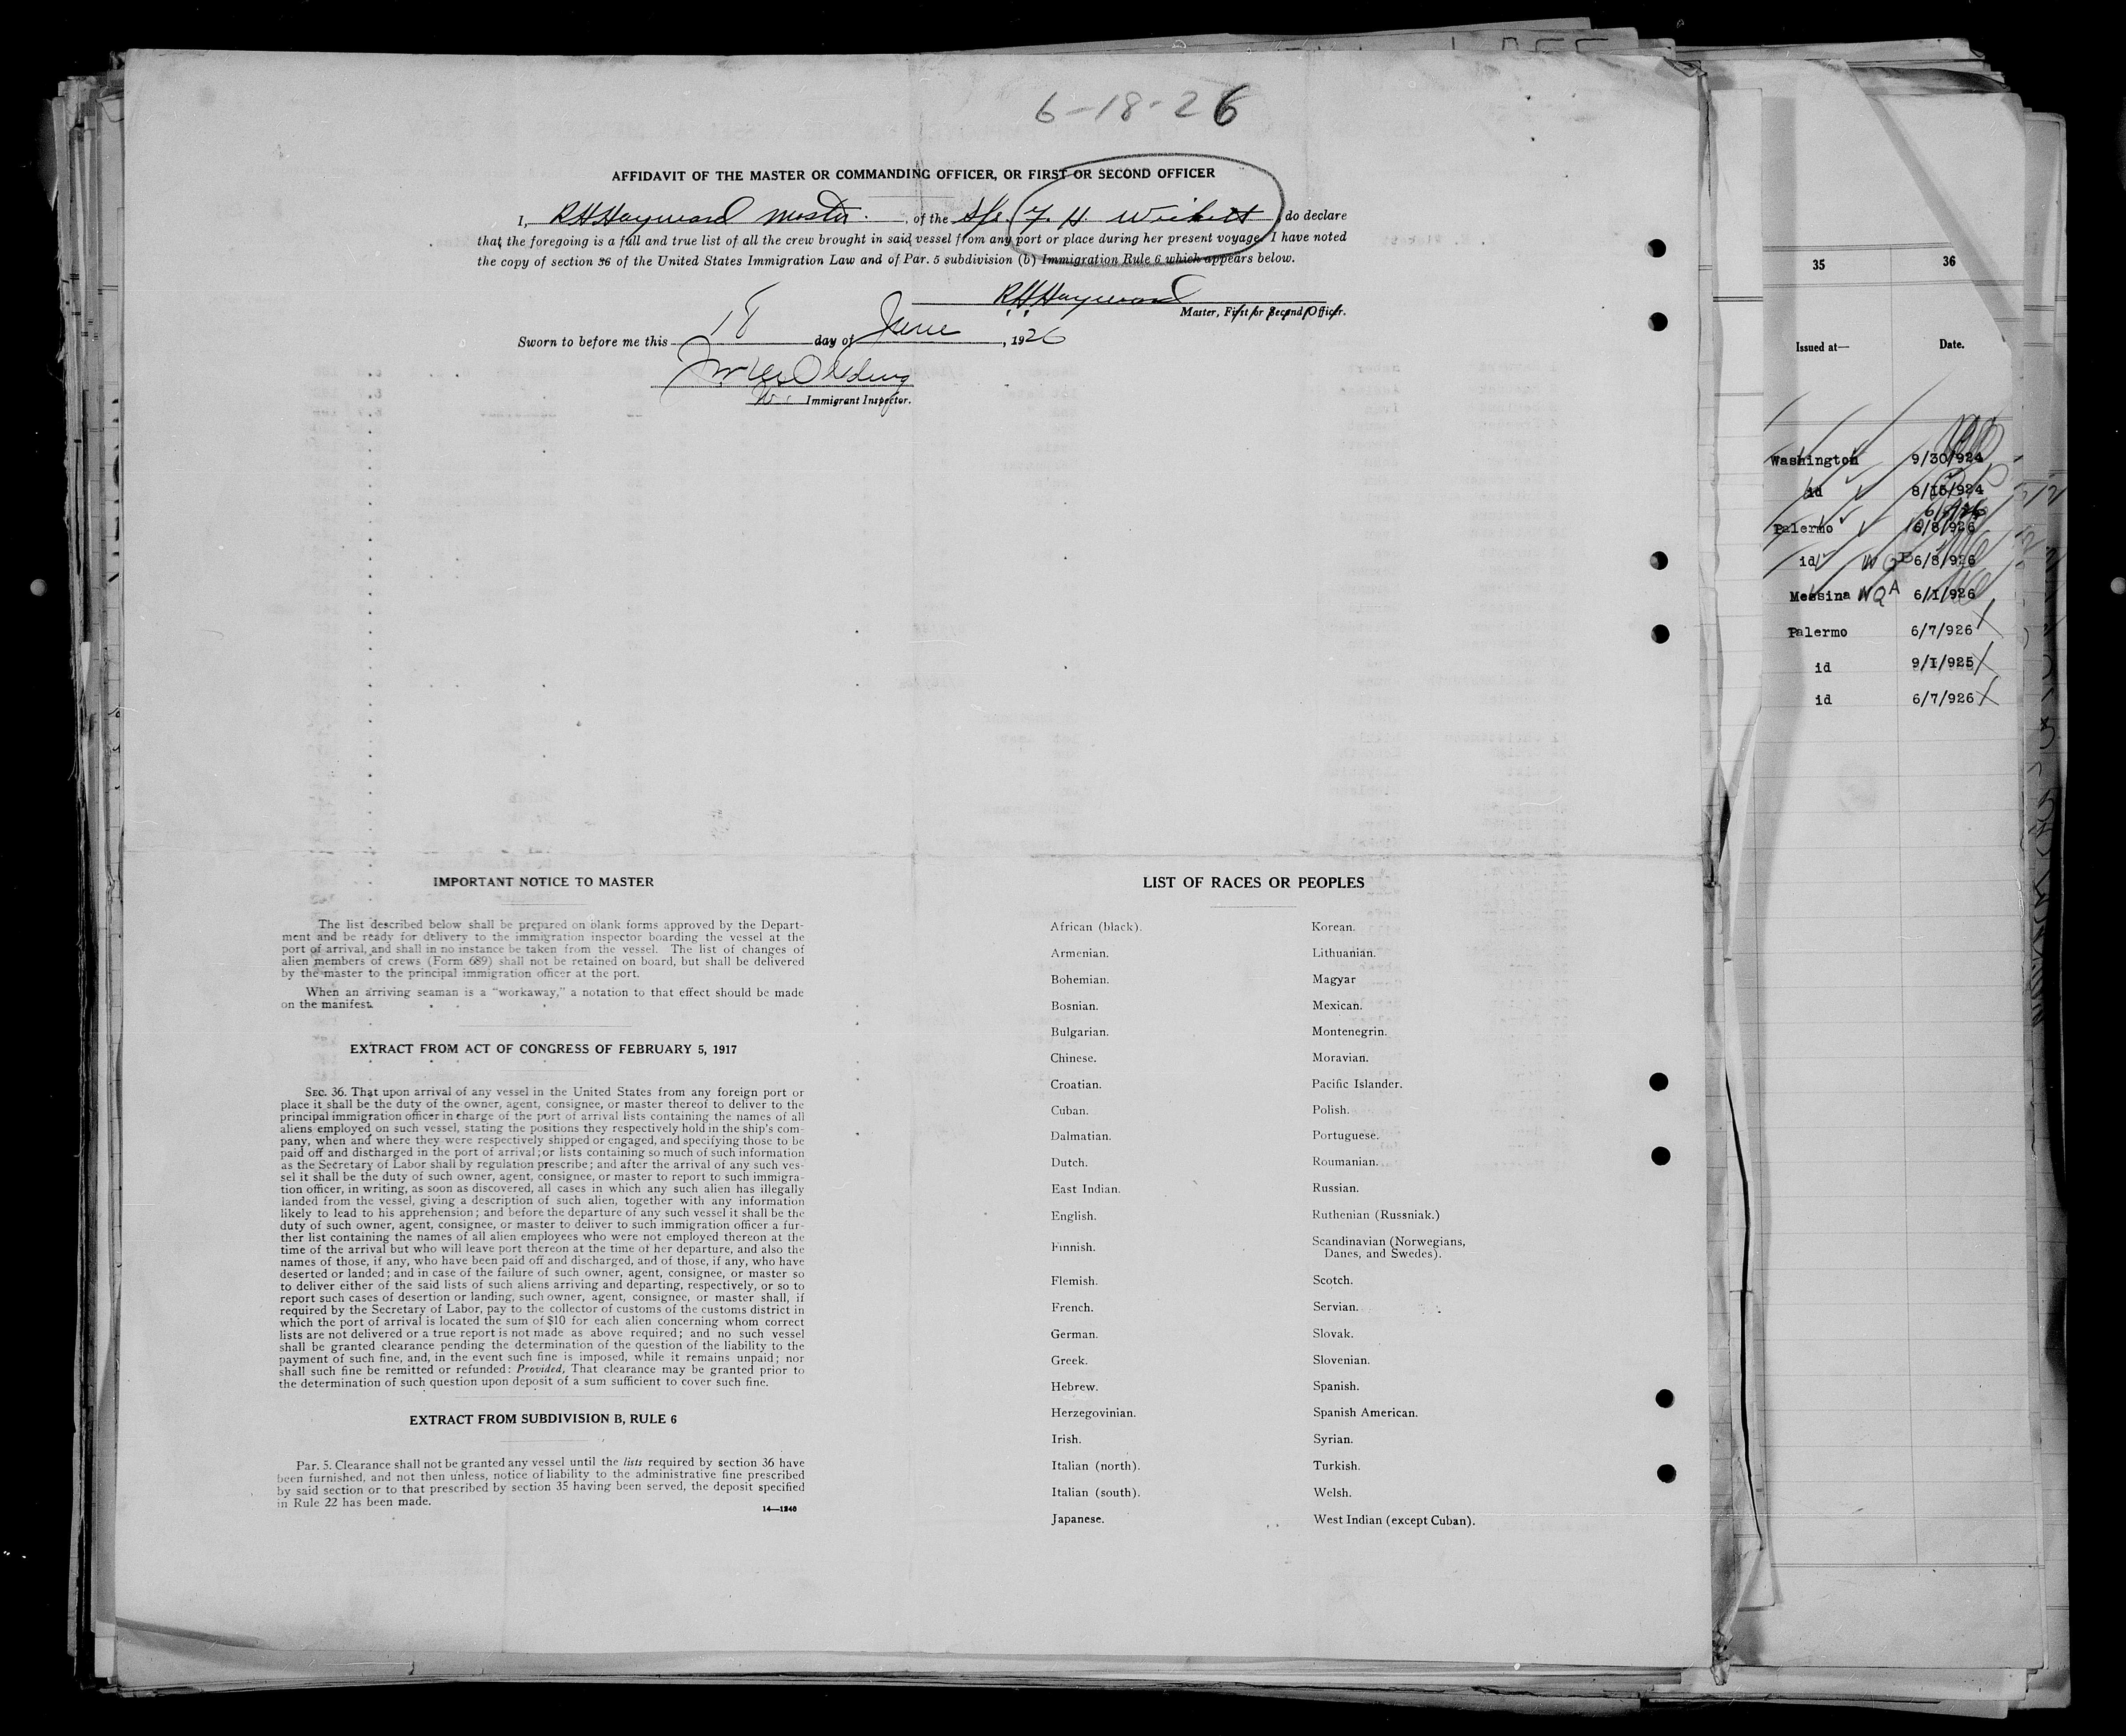 6-18-26
AFFIDAVIT OF THE MASTER OR COMMANDING OFFICER, OR FIRST OR SECOND OFFICER
I, RH Hayward master. of the S/S. F. H. Wickett, do declare
that the foregoing is a full and true list of all the crew brought in said vessel from any port or place during her present voyage. I have noted
the copy of section 36 of the United States Immigration Law and of Par. 5 subdivision (b) Immigration Rule 6 which appears below.
RH Hayward
Master, First or Second Officer.
Sworn to before me this 18 day of June, 1926
Immigrant Inspector.
IMPORTANT NOTICE TO MASTER
The list described below shall be prepared on blank forms approved by the Depart-
ment and be ready for delivery to the immigration inspector boarding the vessel at the
port of arrival, and shall in no instance be taken from the vessel. The list of changes of
alien members of crews (Form 689) shall not be retained on board, but shall be delivered
by the master to the principal immigration officer at the port.
When an arriving seaman is a "workaway," a notation to that effect should be made
on the manifest.
EXTRACT FROM ACT OF CONGRESS OF FEBRUARY 5, 1917
SEC. 36. That upon arrival of any vessel in the United States from any foreign port or
place it shall be the duty of the owner, agent, consignee, or master thereof to deliver to the
principal immigration officer in charge of the port of arrival lists containing the names of all
aliens employed on such vessel, stating the positions they respectively hold in the ship's com-
pany, when and where they were respectively shipped or engaged, and specifying those to be
paid off and discharged in the port of arrival; or lists containing so much of such information
as the Secretary of Labor shall by regulation prescribe; and after the arrival of any such ves-
sel it shall be the duty of such owner, agent, consignee, or master to report to such immigra-
tion officer, in writing, as soon as discovered, all cases in which any such alien has illegally
landed from the vessel, giving a description of such alien, together with any information
likely to lead to his apprehension; and before the departure of any such vessel it shall be the
duty of such owner, agent, consignee, or master to deliver to such immigration officer a fur-
ther list containing the names of all alien employees who were not employed thereon at the
time of the arrival but who will leave port thereon at the time of her departure, and also the
names of those, if any, who have been paid off and discharged, and of those, if any, who have
deserted or landed; and in case of the failure of such owner, agent, consignee, or master so
to deliver either of the said lists of such aliens arriving and departing, respectively, or so to
report such cases of desertion or landing, such owner, agent, consignee, or master shall, if
required by the Secretary of Labor, pay to the collector of customs of the customs district in
which the port of arrival is located the sum of $10 for each alien concerning whom correct
lists are not delivered or a true report is not made as above required; and no such vessel
shall be granted clearance pending the determination of the question of the liability to the
payment of such fine, and, in the event such fine is imposed, while it remains unpaid; nor
shall such fine be remitted or refunded: Provided, That clearance may be granted prior to
the determination of such question upon deposit of a sum sufficient to cover such fine.
EXTRACT FROM SUBDIVISION B, RULE 6
Par. 5. Clearance shall not be granted any vessel until the lists required by section 36 have
been furnished, and not then unless, notice of liability to the administrative fine prescribed
by said section or to that prescribed by section 35 having been served, the deposit specified
in Rule 22 has been made.
14—1240
LIST OF RACES OR PEOPLES
African (black).
Armenian.
Bohemian.
Bosnian.
Bulgarian.
Chinese.
Croatian.
Cuban.
Dalmatian.
Dutch.
East Indian.
English.
Finnish.
Flemish.
French.
German.
Greek.
Hebrew.
Herzegovinian.
Irish.
Italian (north).
Italian (south).
Japanese.
Korean.
Lithuanian.
Magyar
Mexican.
Montenegrin.
Moravian.
Pacific Islander.
Polish.
Portuguese.
Roumanian.
Russian.
Ruthenian (Russniak.)
Scandinavian (Norwegians,
Danes, and Swedes).
Scotch.
Servian.
Slovak.
Slovenian.
Spanish.
Spanish American.
Syrian.
Turkish.
Welsh.
West Indian (except Cuban).
35 36
Issued at— Date.
Washington 9/30/924
id 8/15/924
Palermo 6/8/926
id 6/8/926
Messina NQA 6/1/926
Palermo 6/7/926
id 9/1/925
id 6/7/926